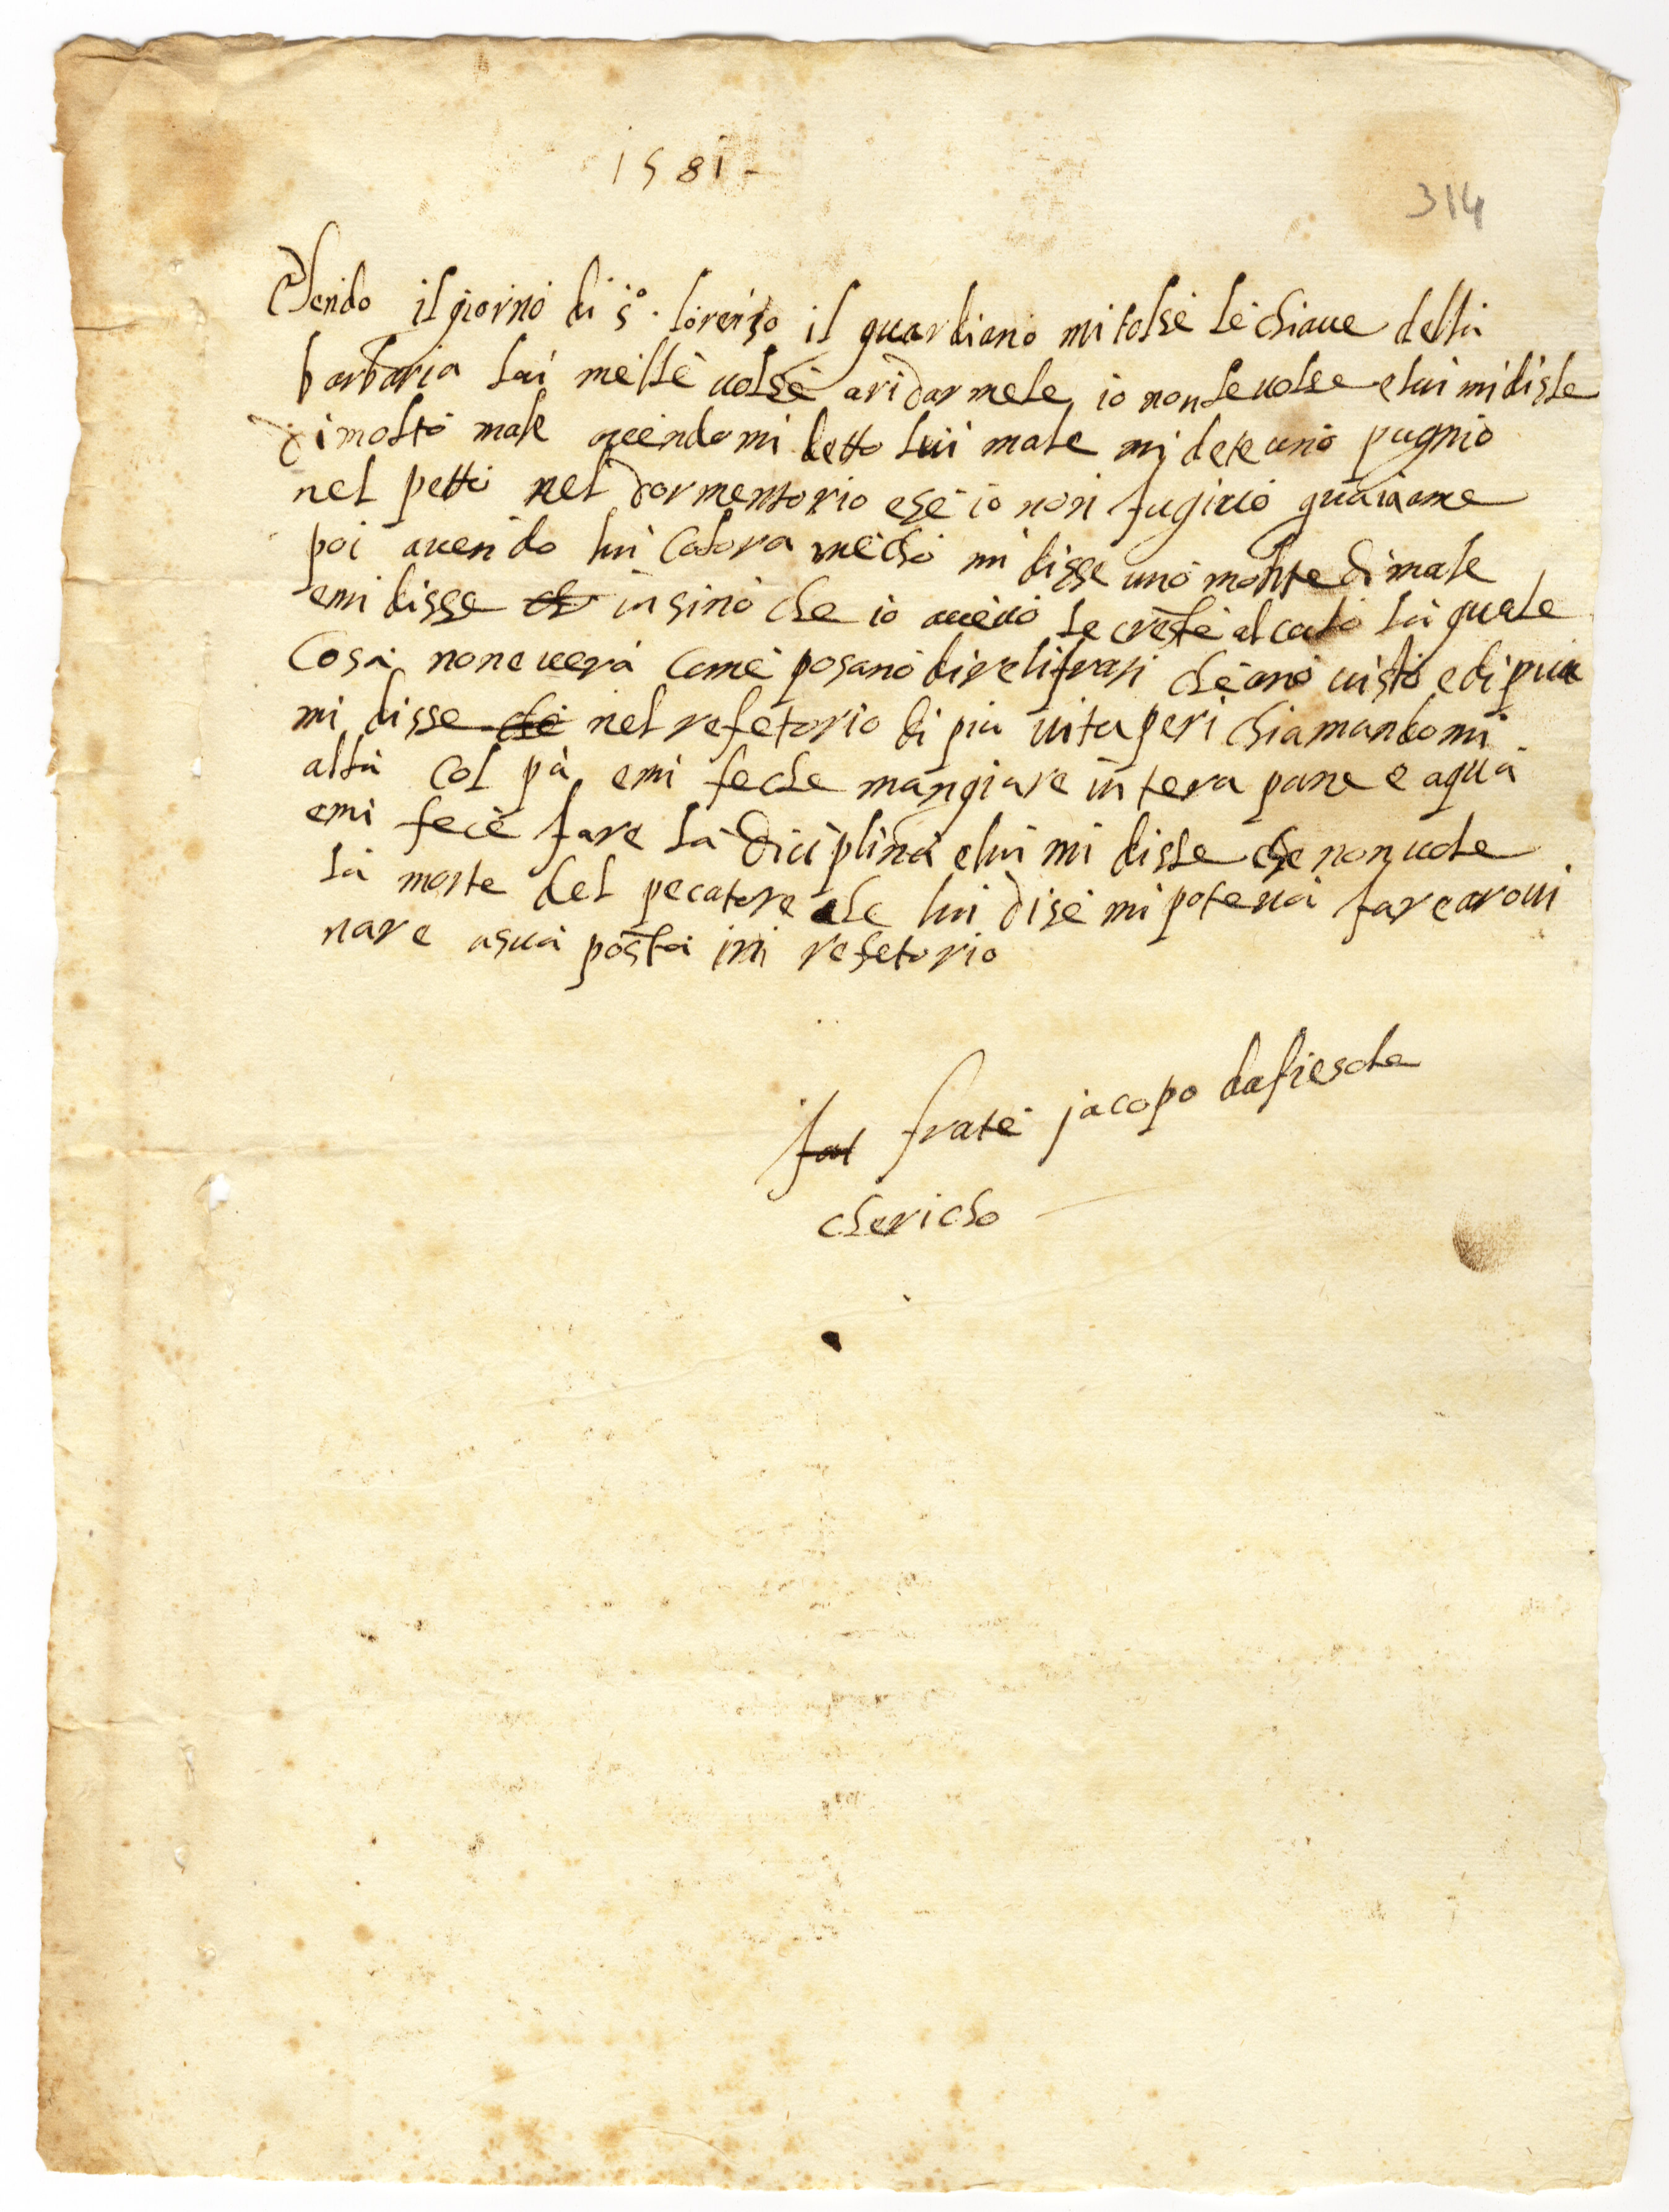 1581-
314
Esendo il giorno di s.º lorenzo il guardiano mi tolse le chiave della
barbaria lui melle volse aridarmele io non le volse e lui mi disse
di molto male avendomi detto lui male mi dete uno pugnio
nel petto nel dormentorio ese io non fugivo guaiame
poi avendo lui colora mecho mi disse uno monte di male
emi disse insino che io avevo le creste al culo la quale
cosa none vera come posano dire li frati che ano visto e di piu
mi disse nel refetorio di piu vituperi chiamandomi
alla col pa emi feche mangiare in tera pane e aqua
emi fece fare la diciplina e lui mi disse che non vole
la morte del pecatore che lui dise mi poteva fare arovi
nare a sua posta in refetorio
frate jacopo da fiesole
chericho